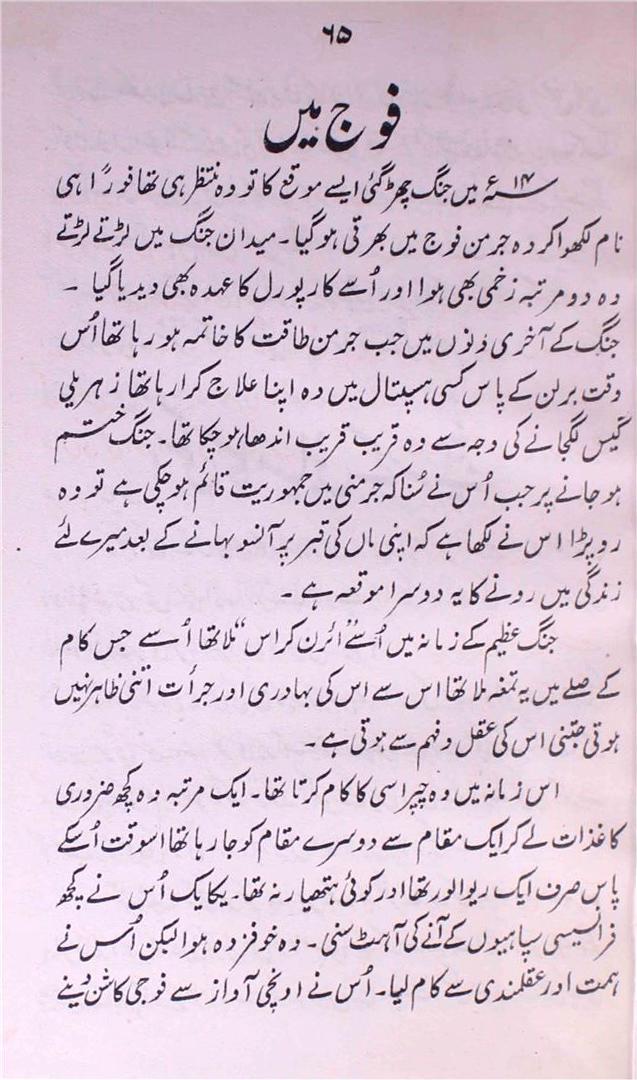 ۶۵
فوج میں
۱۴ء میں جنگ چھڑ گئی ایسے موقع کا تو وہ منتظر ہی تھا فوراً ہی
نام لکھوا کر وہ جرمن فوج میں بھرتی ہو گیا۔ میدان جنگ میں لڑتے لڑتے
وہ دو مرتبہ زخمی بھی ہوا اور اُسے کارپورل کا عہدہ بھی دیدیا گیا ۔
جنگ کے آخری دنوں میں جب جرمن طاقت کا خاتمہ ہو رہا تھا اُس
وقت برلن کے پاس کسی ہسپتال میں وہ اپنا علاج کرا رہا تھا زہریلی
گیس لگجانے کی وجہ سے وہ قریب قریب اندھا ہو چکا تھا۔ جنگ ختم
ہو جانے پر جب اُس نے سُنا کہ جرمنی میں جمہوریت قائم ہو چکی ہے تو وہ
رو پڑا اس نے لکھا ہے کہ اپنی ماں کی قبر پر آنسو بہانے کے بعد میرے لئے
زندگی میں رونے کا یہ دوسرا موقعہ ہے ۔
جنگ عظیم کے زمانہ میں اُسے "ائرن کراس" ملا تھا اُسے جس کام
کے صلے میں یہ تمغہ ملا تھا اس سے اس کی بہادری اور جرأت اتنی ظاہر نہیں
ہوتی جتنی اس کی عقل و فہم سے ہوتی ہے ۔
اس زمانہ میں وہ چپراسی کا کام کرتا تھا۔ ایک مرتبہ وہ کچھ ضروری
کاغذات لے کر ایک مقام سے دوسرے مقام کو جا رہا تھا اسوقت اُسکے
پاس صرف ایک ریوالور تھا اور کوئی ہتھیار نہ تھا۔ یکایک اُس نے کچھ
فرانسیسی سپاہیوں کے آنے کی آہٹ سنی ۔ وہ خوفزدہ ہوا لیکن اُس نے
ہمت اور عقلمندی سے کام لیا۔ اُس نے اونچی آواز سے فوجی کاشن دینے